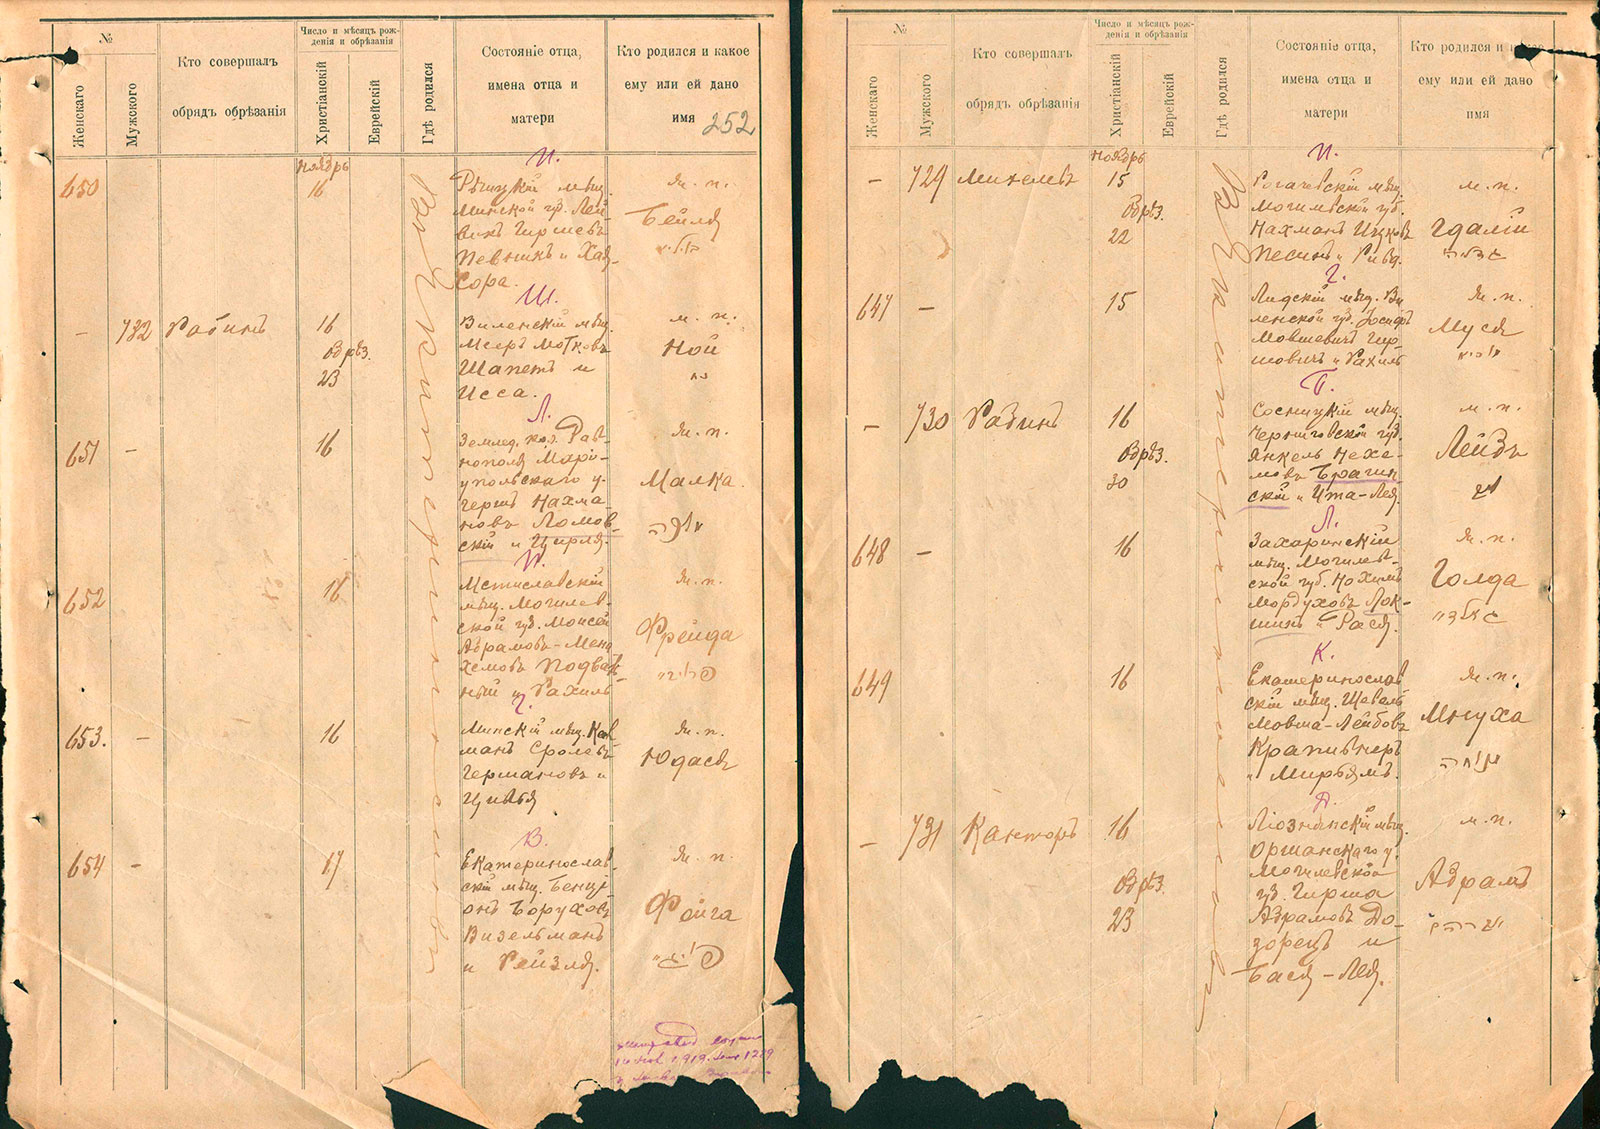 №
Женскаго
Мужского
Кто совершалъ
обрядъ обрѣзанія
Число и мѣсяцъ рож-
денія и обрѣзанія
Христіанскій
Еврейскій
Гдѣ родился
Состояніе отца,
имена отца и
матери
Кто родился и какое
ему или ей дано
имя 252
Ноябрь
650
16
Рѣчицкій мѣщ.
Минской губ. Лей-
Певзникъ и Хая-
Сора.
ж. п.
Бейля
Ш.
- 732 Рабинъ
16
обрѣз.
23
Виленскій мѣщ.
Мееръ Мотковъ
Шапетъ и
Исса.
м. п.
Ной
נח
Л.
651 -
16
Землед. кол. Рав-
нополя Маріу-
польскаго у.
Гершъ Нахма-
новъ Ломов-
скій и Цирля.
ж. п.
Малка.
מלכה
652
16
Мстиславскій
мѣщ. Могилев-
ской губ. Мойсей
Абрамовъ-Мена-
хемовъ Подваль-
ный и Рахиль
ж. п.
Фрейда
653. -
16
Минскій мѣщ. Кал-
манъ Сролевъ
Германовъ и
Цивья
ж. п.
Юдасъ
В.
654 -
17
Екатеринослав-
скій мѣщ. Бенці-
онъ Боруховъ
Визельманъ
и Рейзля.
ж. п.
Фейга
פייגא
Въ Екатеринославѣ
№
Женскаго
Мужского
Кто совершалъ
обрядъ обрѣзанія
Число и мѣсяцъ рож-
денія и обрѣзанія
Христіанскій
Еврейскій
Гдѣ родился
Состояніе отца,
имена отца и
матери
Кто родился и какое
ему или ей дано
имя
Ноябрь
П.
- 729 Михелевъ
15
обрѣз.
22
Рогачевскій мѣщ.
Могилевской губ.
Нахманъ Ицковъ
Песинъ и Ривa.
м. п.
Гдалій
גדליה
Г.
647 -
15
Лидскій мѣщ. Ви-
ленской губ. Іосифъ
Мовшевичъ Гир-
шовичъ и Рахиль
ж. п.
Муся
מוסיא
Б.
- 730 Рабинъ
16
обрѣз.
30
Сосницкій мѣщ.
Черниговской губ.
Янкель Нехе-
мовъ Брагин-
скій и Ита-Лея.
м. п.
Лейзъ
Л.
648 -
16
Захаринскій
мѣщ. Могилев-
ской губ. Нохимъ
Мордуховъ Лок-
шинъ и Рася.
ж. п.
Голда
גאלדא
К.
649
16
Екатеринослав-
скій мѣщ. Шевель
Мовша-Лейбовъ
Крапивнеръ
и Мирьямъ.
ж. п.
Мнуха
מנוחה
Д.
- 731 Канторъ
16
обрѣз.
23
Ліознянскій мѣщ.
Оршанскаго у.
Могилевской
губ. Гирша
Абрамовъ До-
зорецъ и
Бася-Лея.
м. п.
Абрамъ
Въ Екатеринославѣ